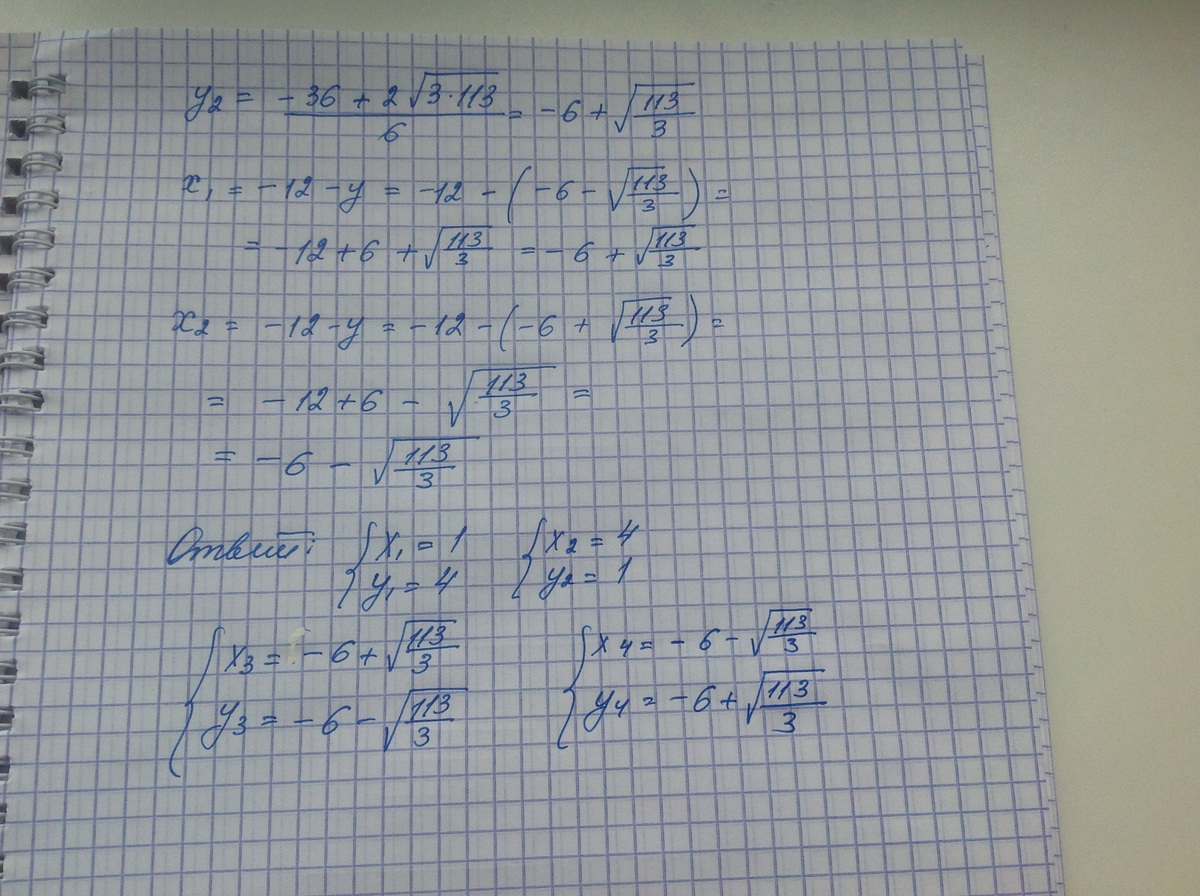 y₂ = (-36 + 2√(3·113))/6 = -6 + √(113/3)
x₁ = -12 - y = -12 - (-6 - √(113/3)) =
= -12 + 6 + √(113/3) = -6 + √(113/3)
x₂ = -12 - y = -12 - (-6 + √(113/3)) =
= -12 + 6 - √(113/3) =
= -6 - √(113/3)
Ответ: { x₁ = 1 { x₂ = 4
y₁ = 4 y₂ = 1
{ x₃ = -6 + √(113/3) { x₄ = -6 - √(113/3)
y₃ = -6 - √(113/3) y₄ = -6 + √(113/3)